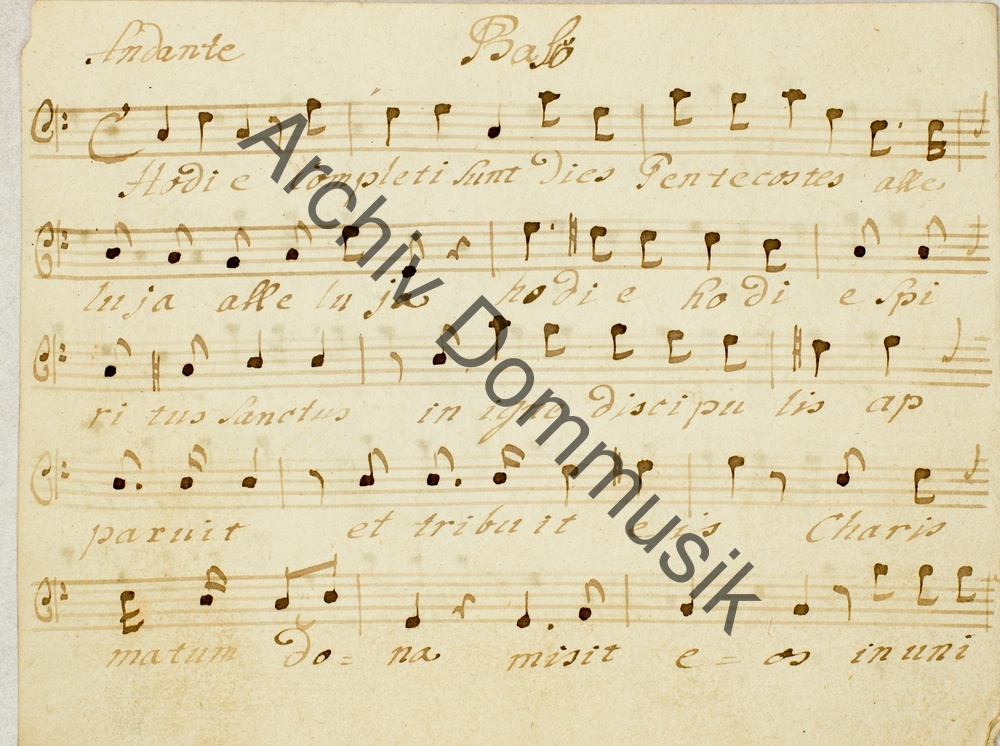 Andante Basso
Hodie Completi sunt Dies Pentecostes alle
luja alle lu ja hodi e ho di e Spi
ri tus Sanctus in igne discipu lis ap
paruit et tribu it e is Charis
matum Do = na misit e = os in uni
Archiv Dommusik